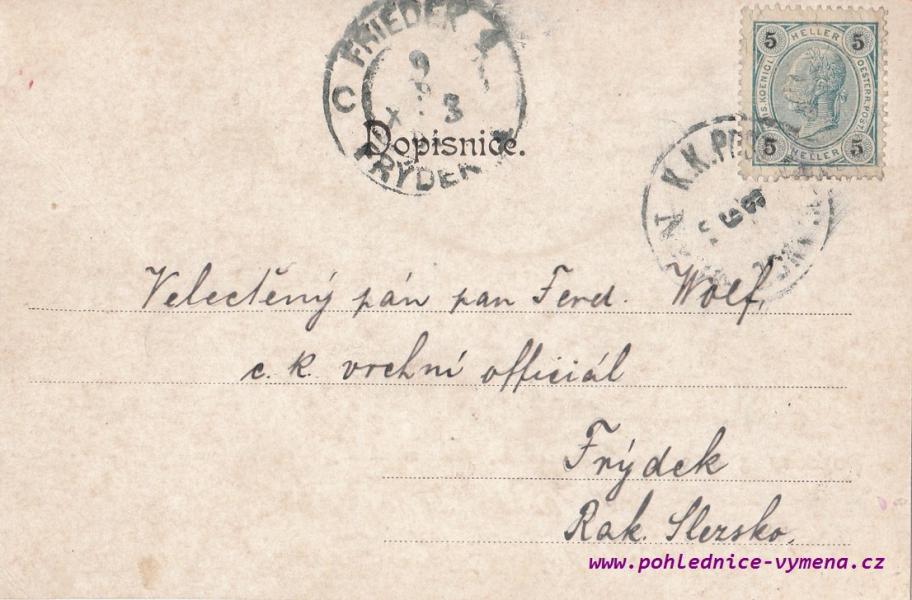 FRIEDEK
C
9
3
FRÝDEK
Dopisnice.
5 HELLER 5
5 HELLER 5
K.K.
Velectěný pán pan Ferd. Wolf,
c. k. vrchní officiál
Frýdek
Rak. Slezsko.
www.pohlednice-vymena.cz